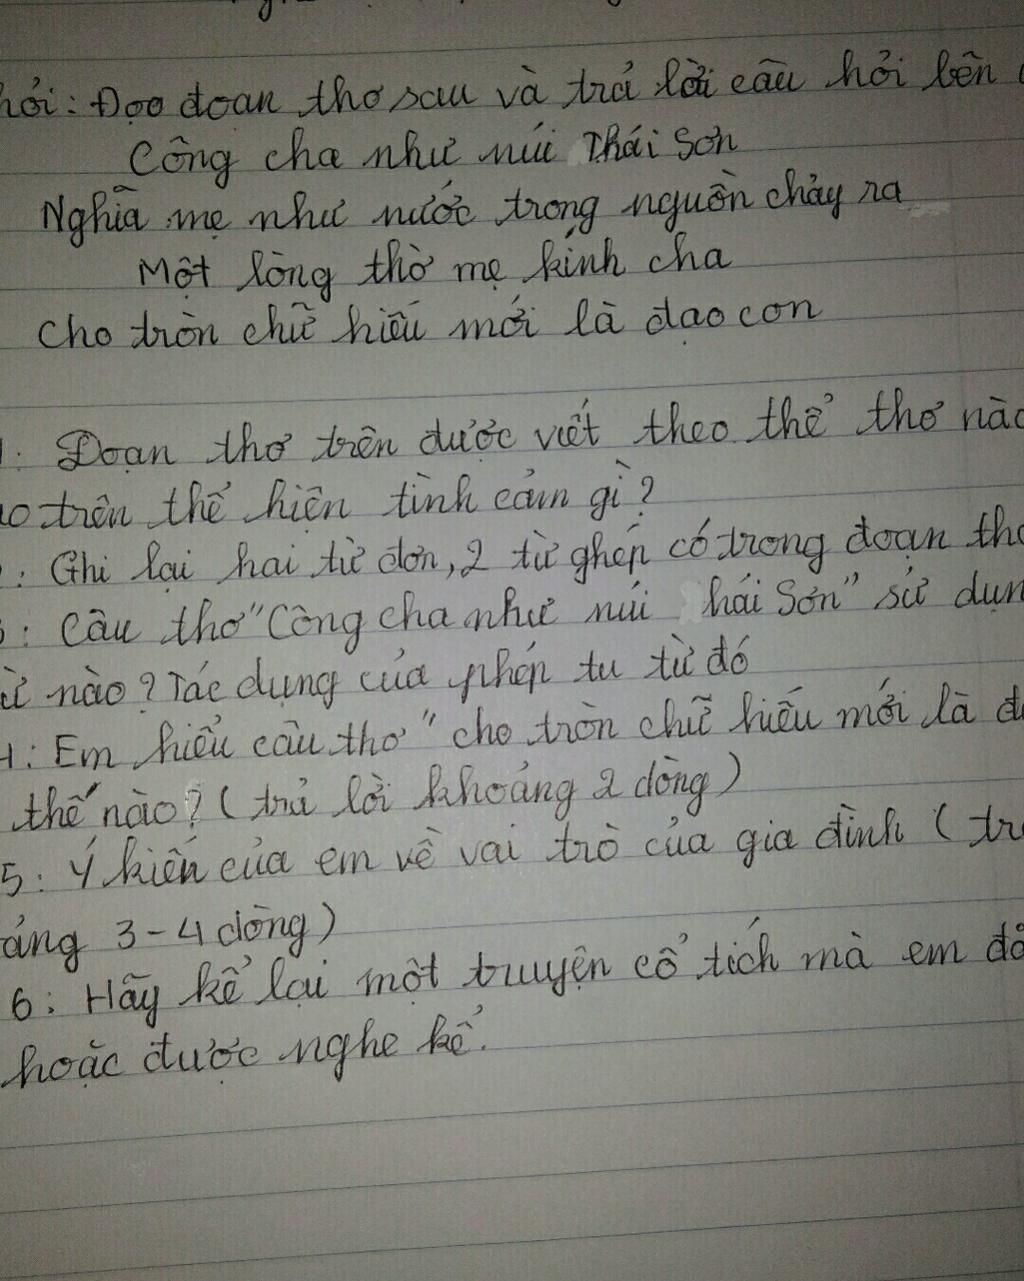 hỏi: Đọc đoạn thơ sau và trả lời câu hỏi bên
Công cha như núi Thái Sơn
Nghĩa mẹ như nước trong nguồn chảy ra
Một lòng thờ mẹ kính cha
Cho tròn chữ hiếu mới là đạo con
1: Đoạn thơ trên được viết theo thể thơ nào
ao trên thể hiện tình cảm gì?
2: Ghi lại hai từ đơn, 2 từ ghép có trong đoạn thơ
3: Câu thơ "Công cha như núi hái Sơn" sử dụn
từ nào? Tác dụng của phép tu từ đó
4: Em hiểu câu thơ "cho tròn chữ hiếu mới là đ
thế nào? (trả lời khoảng 2 dòng)
5: Ý kiến của em về vai trò của gia đình (tr
oảng 3-4 dòng)
6: Hãy kể lại một truyện cổ tích mà em đã
hoặc được nghe kể.